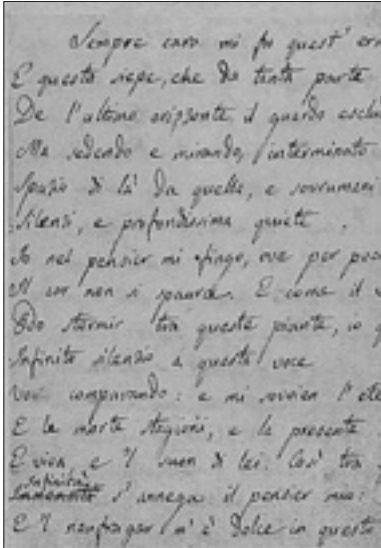 Sempre caro mi fu quest' er
E questa siepe, che da tanta parte
De l'ultimo orizzonte il guardo esclu
Ma sedendo e mirando, interminato
Spazio di là da quella, e sovrumani
Silenzi, e profondissima quiete
Io nel pensier mi fingo, ove per poco
Il cor non si spaura. E come il v
Odo stormir tra queste piante, io q
Infinito silenzio a questa voce
Vo comparando: e mi sovvien l'ete
E le morte stagioni, e la presente
E viva, e 'l suon di lei. Così tra q
infinità
s'annega il pensier mio:
E 'l naufragar m'è dolce in questo